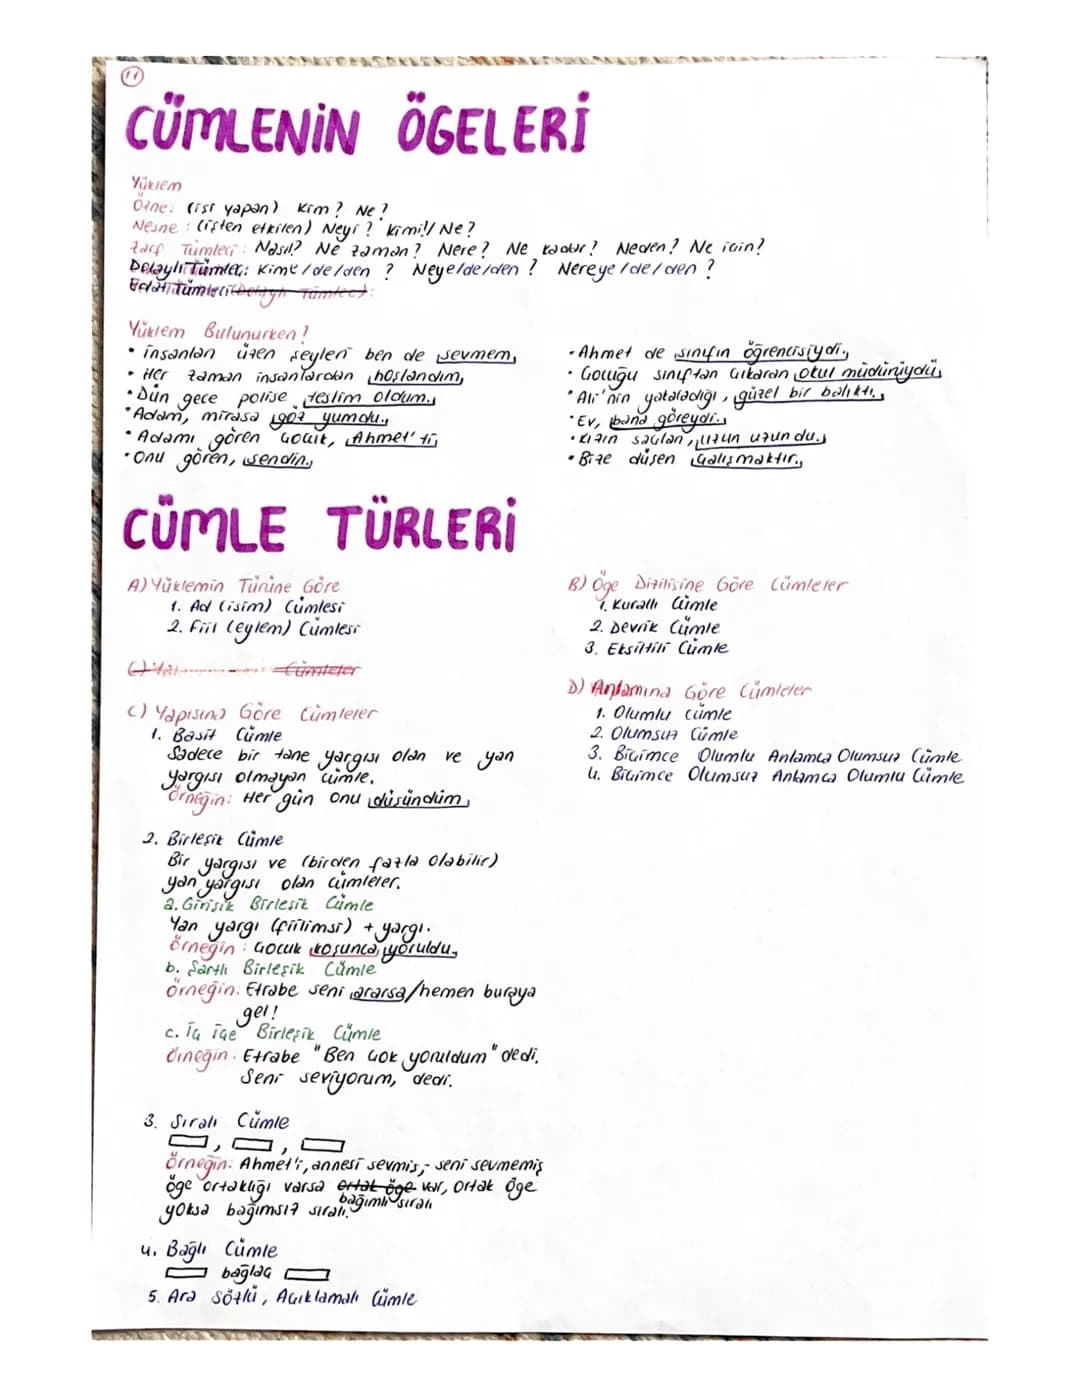 11
CÜMLENİN ÖGELERİ
Yüklem
Özne: (işi yapan) Kim? Ne?
Nesne: (işten etkilen) Neyi? Kimi!/ Ne?
Zarf Tümleci: Nasıl? Ne zaman? Nere? Ne kadar? Neden? Ne için?
Dolaylı Tümleç: Kime/de/den? Neye/de/den? Nereye/de/den?
Edat Tümleci (Dolaylı Tümleç):
Yüklem Bulunurken!
• insanları üzen şeyleri ben de sevmem,
• Her zaman insanlardan hoşlandım,
• Dün gece polise teslim oldum.
• Adam, mirasa göz yumdu.
• Adamı gören çocuk, Ahmet'ti,
• Onu gören, sendin.
• Ahmet de sınıfın öğrencisiydi.
• Çocuğu sınıftan çıkaran okul müdürüydü,
• Ali'nin yakaladığı, güzel bir balıktı.
• Ev, bana göreydi.
• Kızın saçları, uzun uzundu.
• Bize düşen çalışmaktır.
CÜMLE TÜRLERİ
A) Yüklemin Türüne Göre
1. Ad (isim) Cümlesi
2. Fiil (eylem) Cümlesi
B) Öge Dizilişine Göre Cümleler
1. Kurallı Cümle
2. Devrik Cümle
3. Eksiltili Cümle
C) Cümleler
C) Yapısına Göre Cümleler
1. Basit Cümle
Sadece bir tane yargısı olan ve yan
yargısı olmayan cümle.
Örneğin: Her gün onu düşündüm,
2. Birleşik Cümle
Bir yargısı ve (birden fazla olabilir)
yan yargısı olan cümleler.
a. Girişik Birleşik Cümle
Yan yargı (fiilimsi) + yargı.
Örneğin: Çocuk koşunca yoruldu.
b. Şartlı Birleşik Cümle
Örneğin: Etrabe seni ararsa/hemen buraya
gel!
c. İç içe Birleşik Cümle
Örneğin. Etrabe "Ben çok yoruldum" dedi.
Seni seviyorum, dedi.
3. Sıralı Cümle
, ,
Örneğin: Ahmet'i, annesi sevmiş,- seni sevmemiş
öge ortaklığı varsa ortak öge var, ortak öge
bağımlı sıralı
yoksa bağımsız sıralı.
4. Bağlı Cümle
bağlaç
5. Ara Sözlü, Açıklamalı Cümle
D) Anlamına Göre Cümleler
1. Olumlu cümle
2. Olumsuz Cümle
3. Biçimce Olumlu Anlamca Olumsuz Cümle
4. Biçimce Olumsuz Anlamca Olumlu Cümle